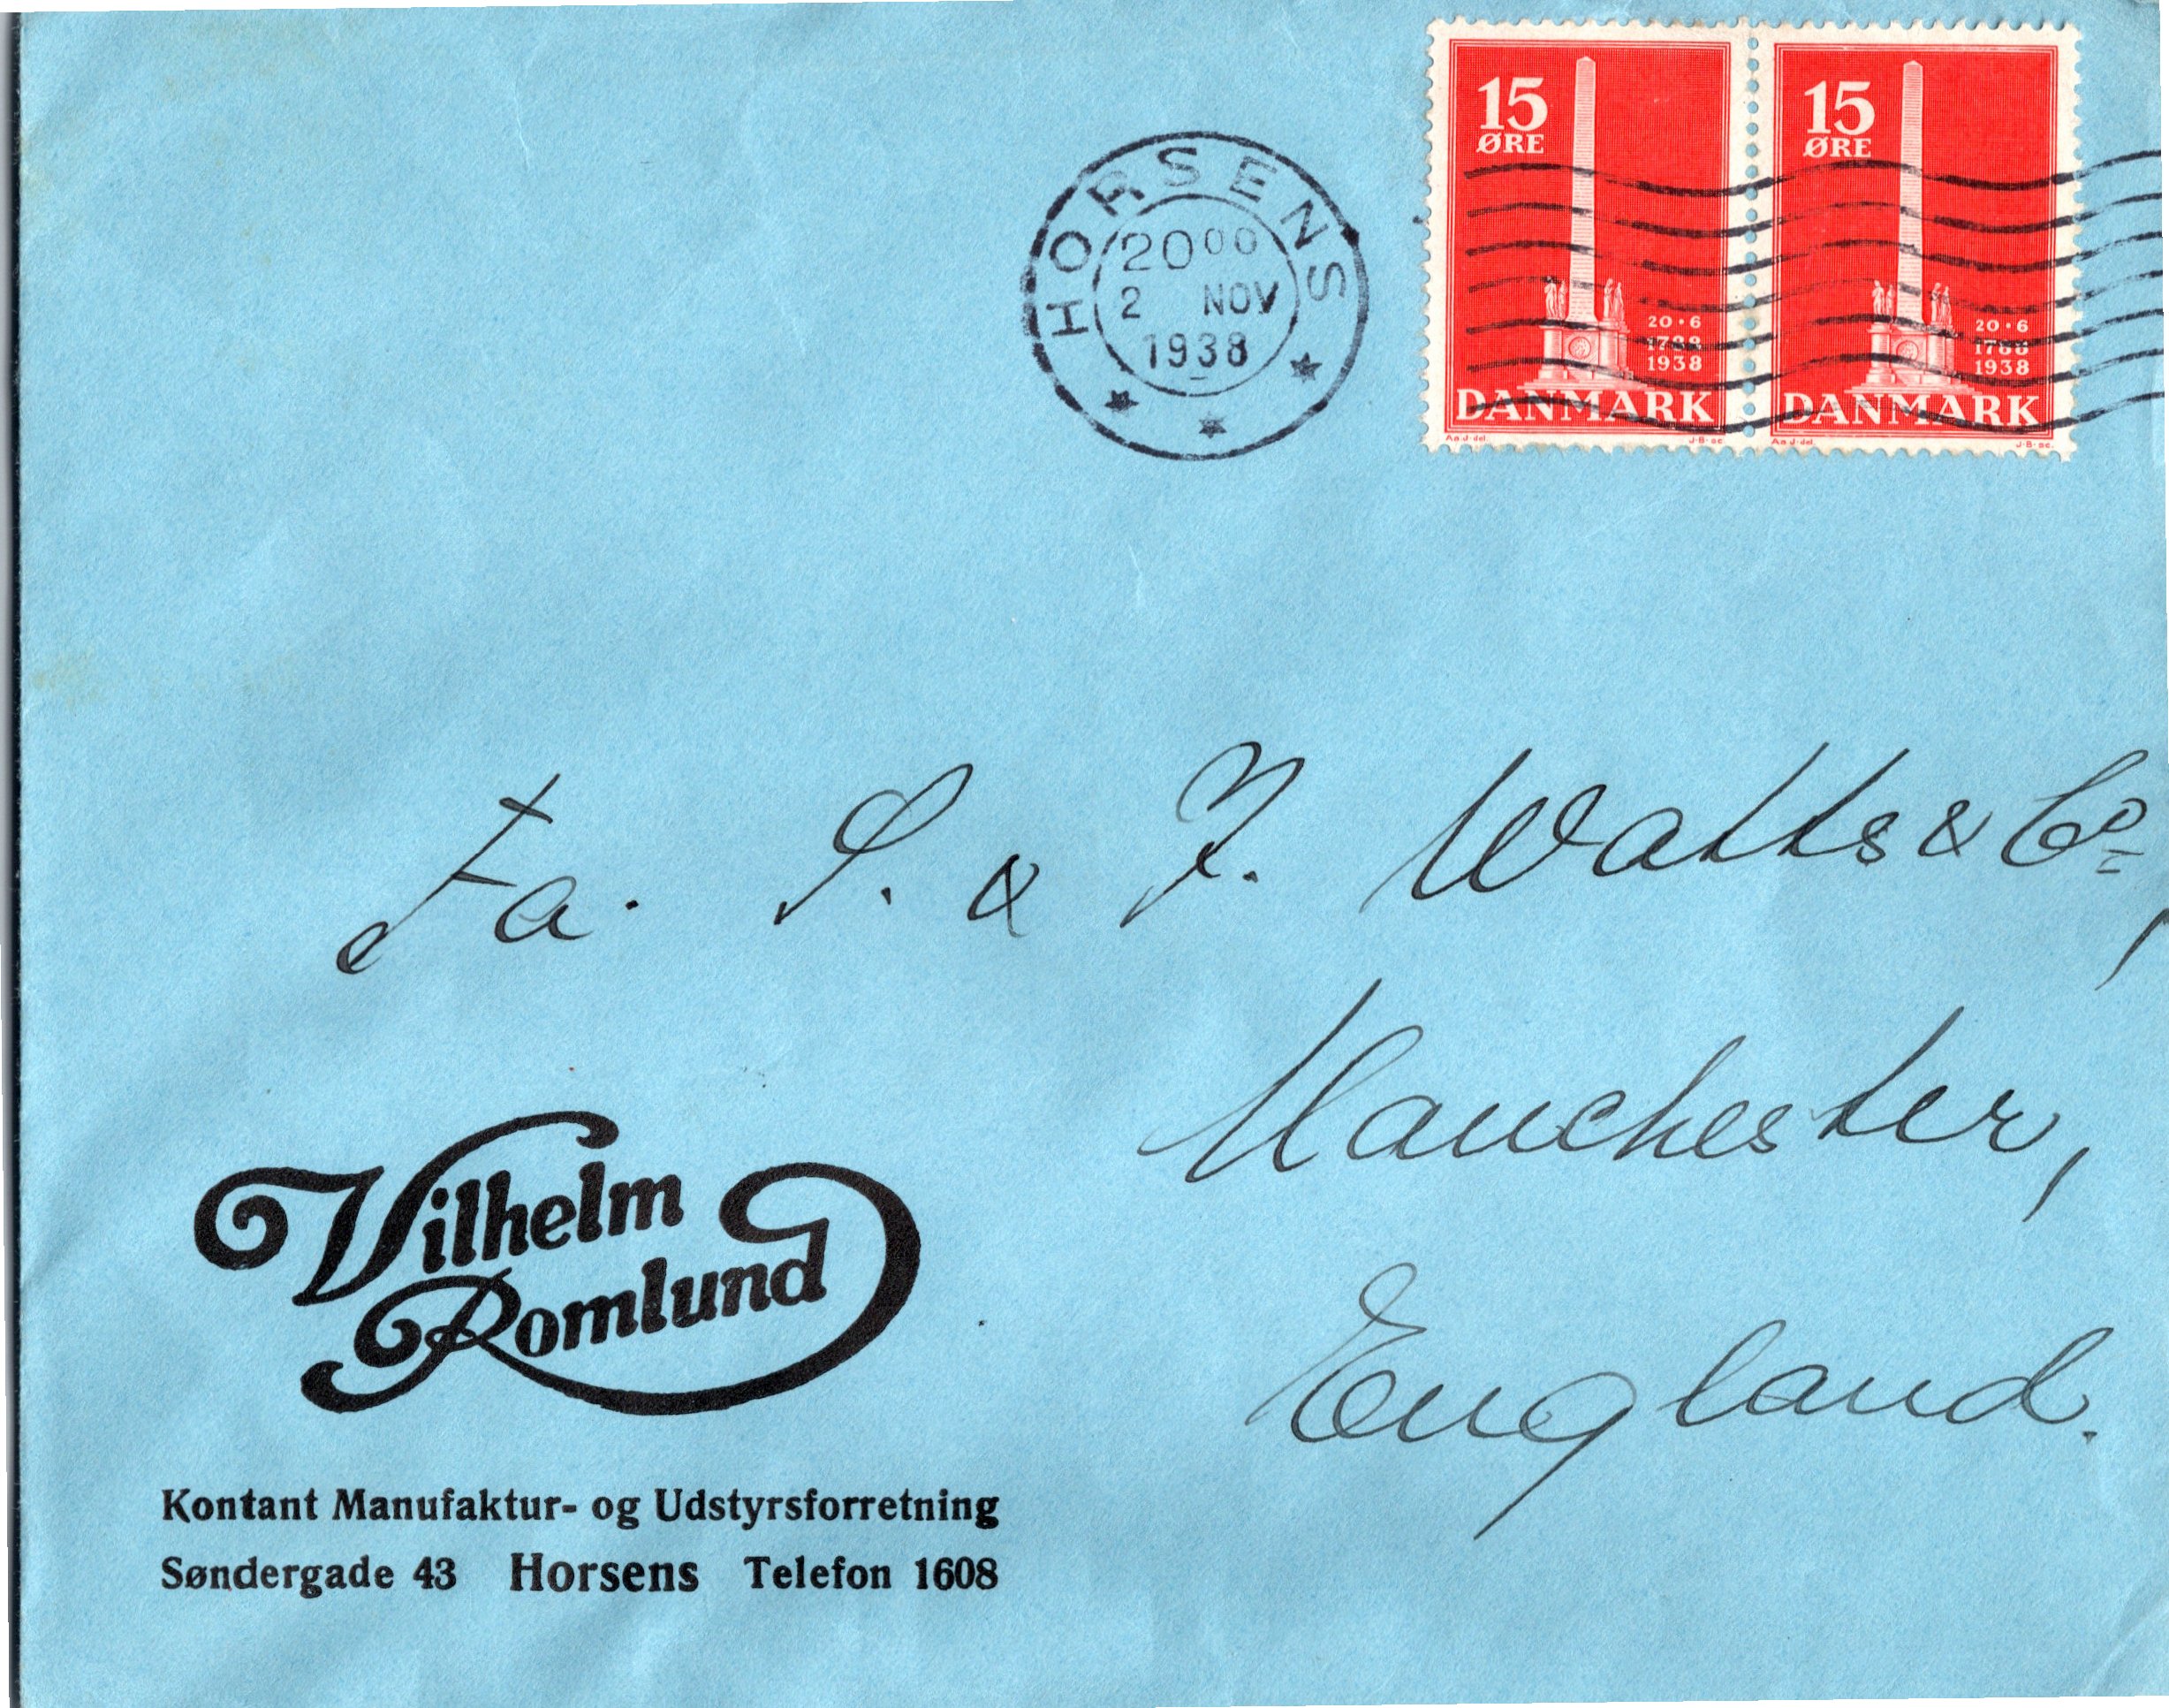 HORSENS
20 00
2 NOV
1938
15
ØRE
20·6
1788
1938
DANMARK
Aa J·del.
J·B·sc.
15
ØRE
20·6
1788
1938
DANMARK
Aa J·del.
J·B·sc.
Fa. S. & J. Watts & Co,
Manchester,
England.
Vilhelm
Romlund
Kontant Manufaktur- og Udstyrsforretning
Søndergade 43 Horsens Telefon 1608